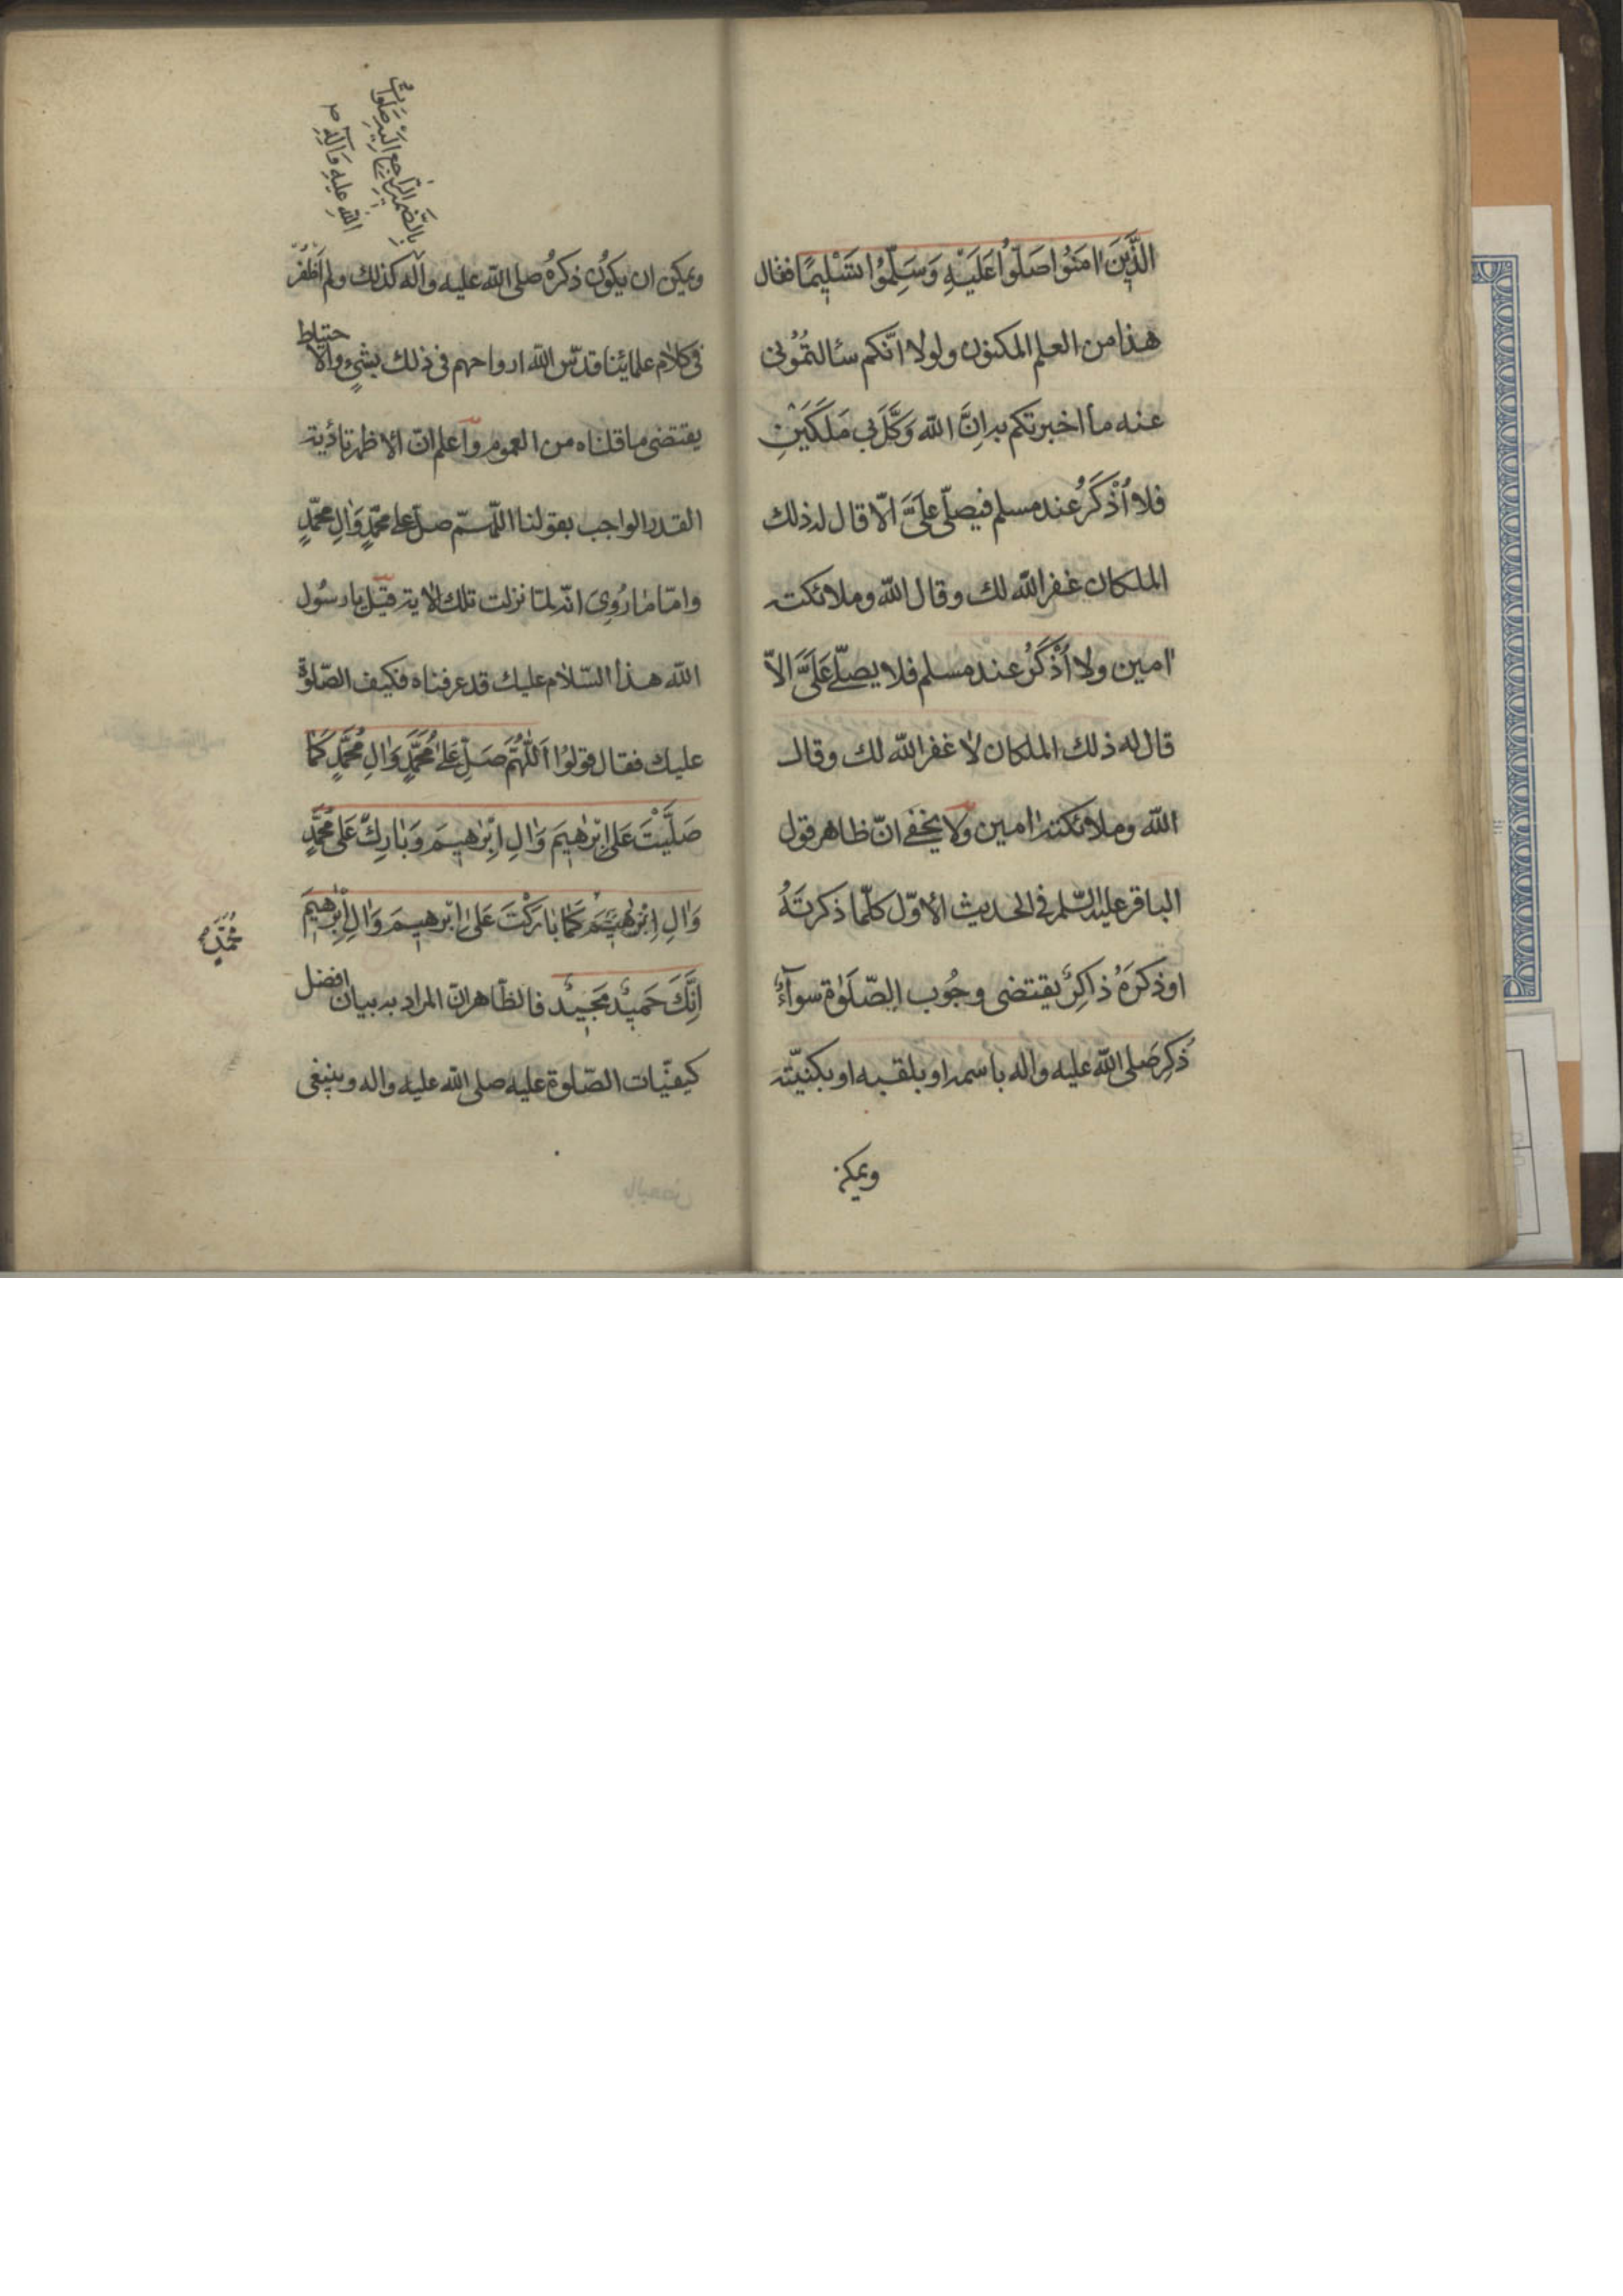 الَّذِينَ اٰمَنُوا صَلُّوا عَلَيْهِ وَسَلِّمُوا تَسْلِيمًا فقال
هذا من العلم المكنون ولولا انّكم سئالتمُوُنى
عنه ما اخبرتكم به اِنَّ الله وَكَّلَ بي مَلَكَيْنِ
فلا اُذْكَرُ عند مسلم فيصلّى عَلَىَّ الّا قال له ذلك
الملكان غفر الله لك وقال الله وملائكته
اٰمين ولا اُذْكَرُ عند مسلم فلا يصلّے عَلَىَّ الاّ
قال له ذلك الملكان لا غفر الله لك وقال
الله وملائكته اٰمين ولا يخفے انّ ظاهر قول
الباقر عليه السّلم فى الحديث الاوّل كلّما ذكرتَهُ
او ذكرَهُ ذاكِرٌ يقتضى وجُوب الصّلَوٰة سوآءٌ
ذُكِرَ صلى الله عليه واله باسمه او بلقبه او بكنيّته
ويمكن
بالضّمير الرّاجع اليه صلوات
الله عليه واٰله
ويمكن ان يكوُن ذكرهُ صلى الله عليه واٰله كذلك ولم اَظْفُرْ
فى كلام علمائنا قدّس الله ارواحهم فى ذلك بشىءٍ والاحتياط
يقتضى ما قلناه من العموم واعلم انّ الاظهر تادّية
القدر الواجب بقولنا اللّهمّ صلّ على محمّدٍ وَاٰلِ محمّدٍ
وامّا ما رُوِىَ انّه لمّا نزلت تلك الاٰية قيل يا رسُول
الله هذا السّلام عليك قد عرفناه فكيف الصّلوةُ
عليك فقال قولوُا اَللّٰهُمَّ صَلِّ عَلىٰ مُحَمَّدٍ وَاٰلِ مُحَمَّدٍ كَمٰا
صَلَّيْتَ عَلىٰ اِبْرٰهيمَ وَاٰلِ اِبْرٰهيمَ وَبٰارِكْ عَلىٰ مُحَمَّدٍ
وَاٰلِ مُحَمَّدٍ كَمٰا بٰارَكْتَ عَلىٰ اِبْرٰهيمَ وَاٰلِ اِبْرٰهيمَ
اِنَّكَ حَميٌد مَجيٌد فالظّاهر انّ المراد به بيان افضل
كيفيّات الصّلوة عليه صلى الله عليه واله وينبغى